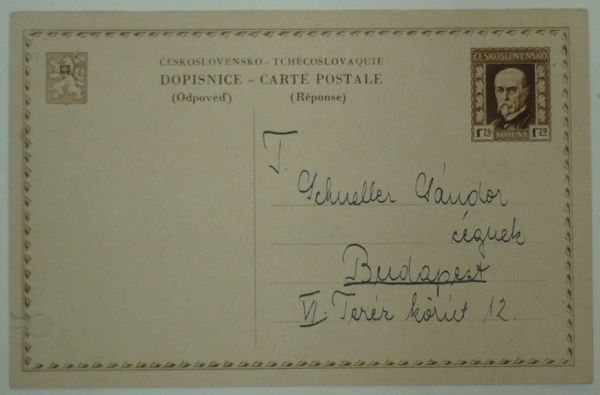 ČESKOSLOVENSKO - TCHÉCOSLOVAQUIE
DOPISNICE - CARTE POSTALE
(Odpověď) (Réponse)
ČESKOSLOVENSKO
1 20 1 20
KORUNY
T.
Schueller Sándor
cégnek
Budapest
VI. Teréz körút 12.